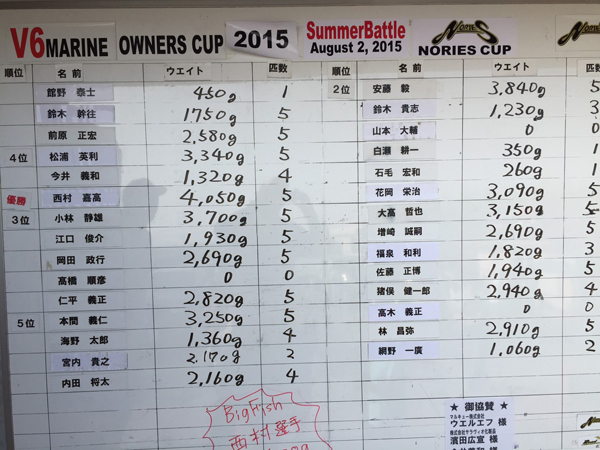 V6 MARINE OWNERS CUP 2015 SummerBattle August 2, 2015 NORIES NORIES CUP
順位 名前 ウエイト 匹数
館野 泰士 450g 1
鈴木 幹往 1750g 5
前原 正宏 2,580g 5
4位 松浦 英利 3,340g 5
今井 義和 1,320g 4
優勝 西村 嘉高 4,050g 5
3位 小林 静雄 3,700g 5
江口 俊介 1,930g 5
岡田 政行 2,690g 5
高橋 順彦 0 0
仁平 義正 2,820g 5
5位 本間 義仁 3,250g 5
海野 太郎 1,360g 4
宮内 貴之 2,170g 2
内田 将太 2,160g 4
順位 名前 ウエイト 匹
2位 安藤 毅 3,840g 5
鈴木 貴志 1,230g 3
山本 大輔 0 0
白瀬 耕一 350g 1
石毛 宏和 260g 1
花岡 栄治 3,090g 5
大高 哲也 3,150g 5
増崎 誠嗣 2,690g 5
福泉 和利 1,820g 3
佐藤 正博 1,940g 5
猪俣 健一郎 2,940g 4
高木 義正 0 0
林 昌弥 2,910g 5
網野 一廣 1,060g 2
BigFish
西村選手
★ 御協賛 ★
マルキュー株式会社
ウエルエフ 様
株式会社サラヴィオ化粧品
濱田広宣 様